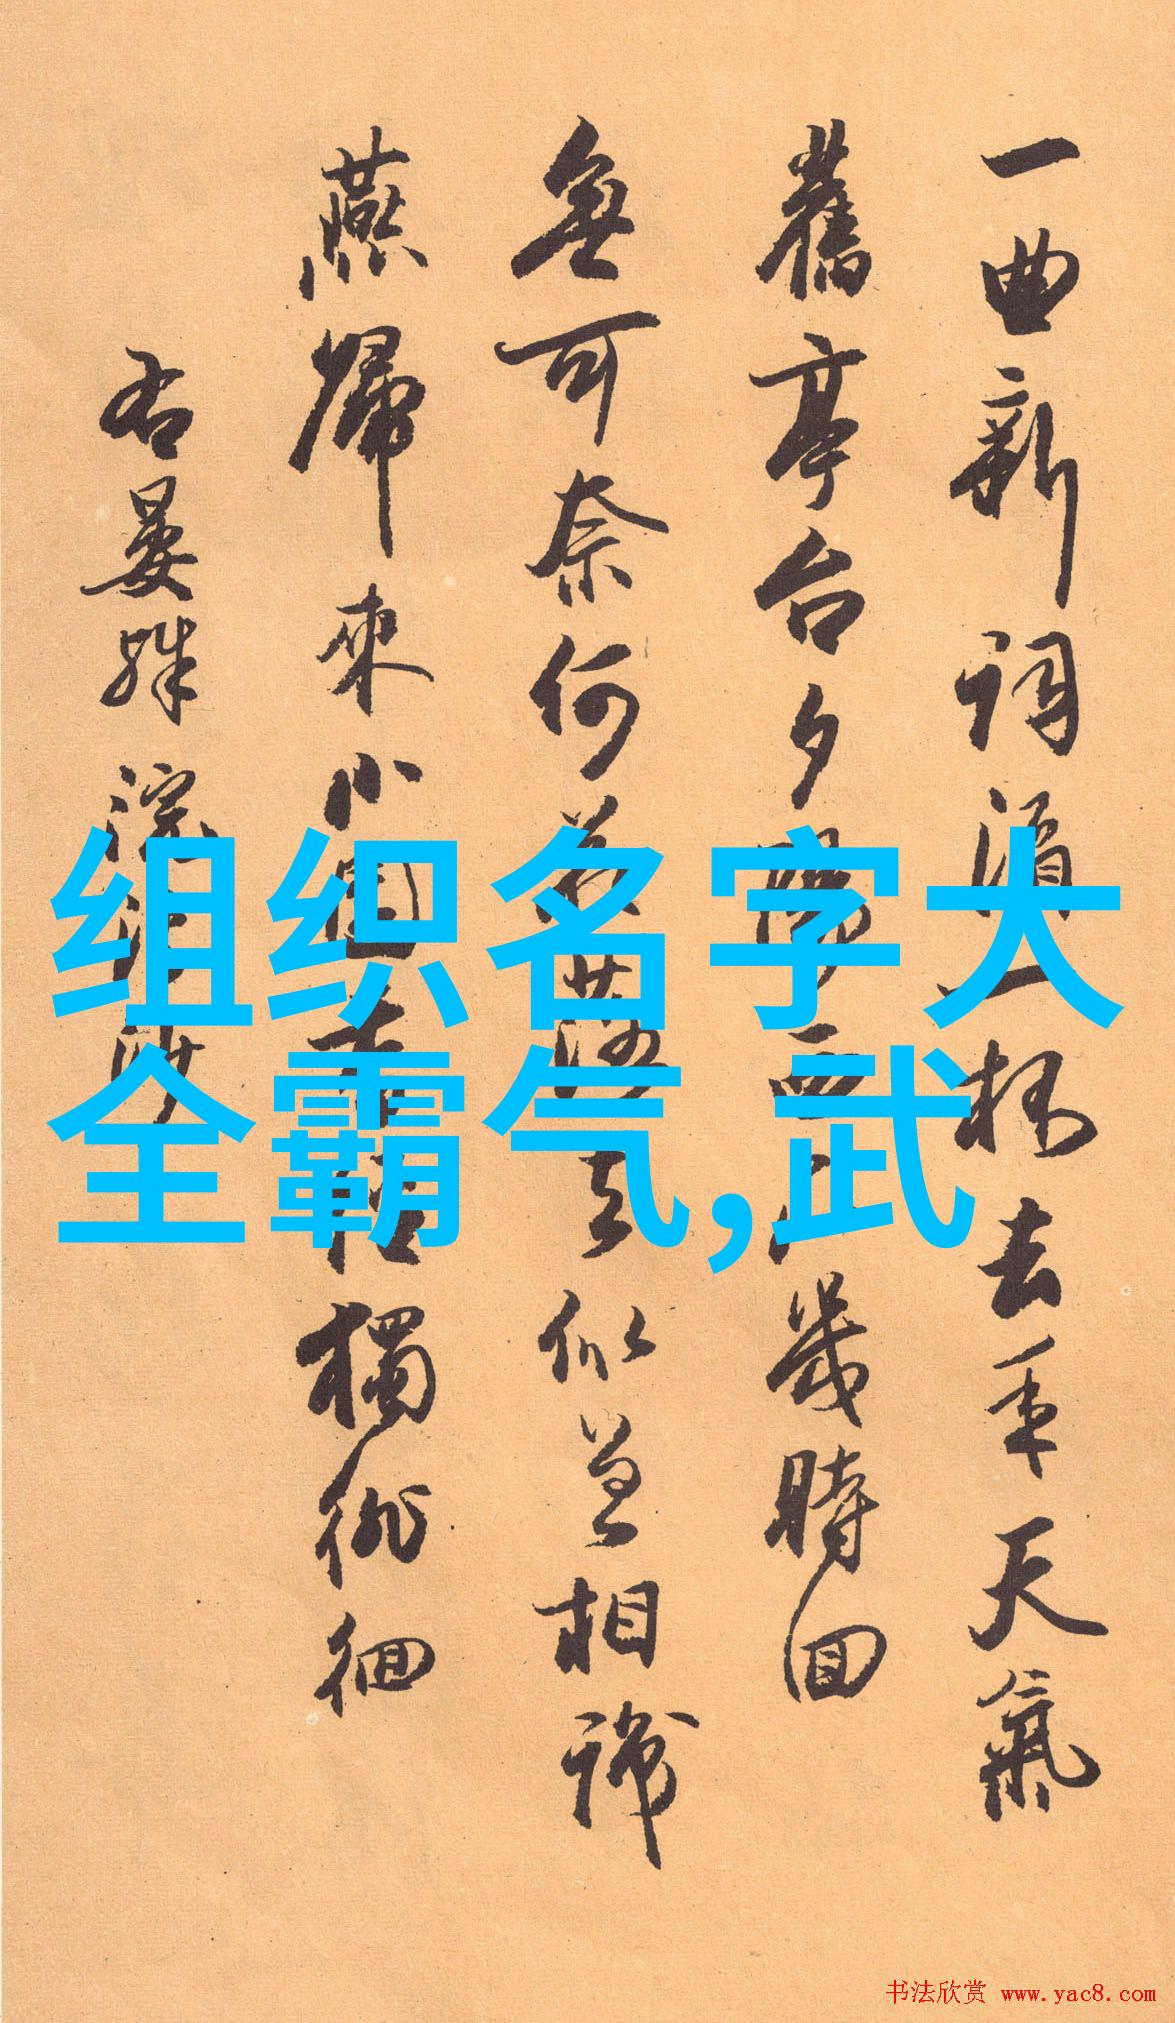 一曲新詞酒一杯去年天氣
舊亭台夕陽西下幾時回
無可奈何花落去似曾相識
燕歸來小園香徑獨徘徊
右晏殊浣溪沙
组织名字大
全霸气,武
书法欣赏 www.yac8.com